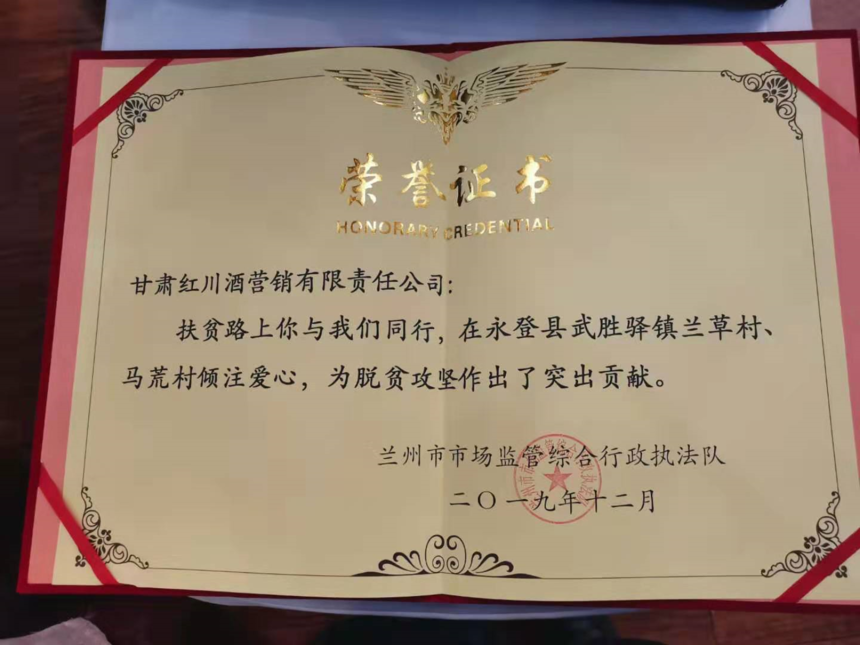 荣誉证书
HONORARY CREDENTIAL
甘肃红川酒营销有限责任公司：
扶贫路上你与我们同行，在永登县武胜驿镇兰草村、
马荒村倾注爱心，为脱贫攻坚作出了突出贡献。
兰州市市场监管综合行政执法队
二〇一九年十二月